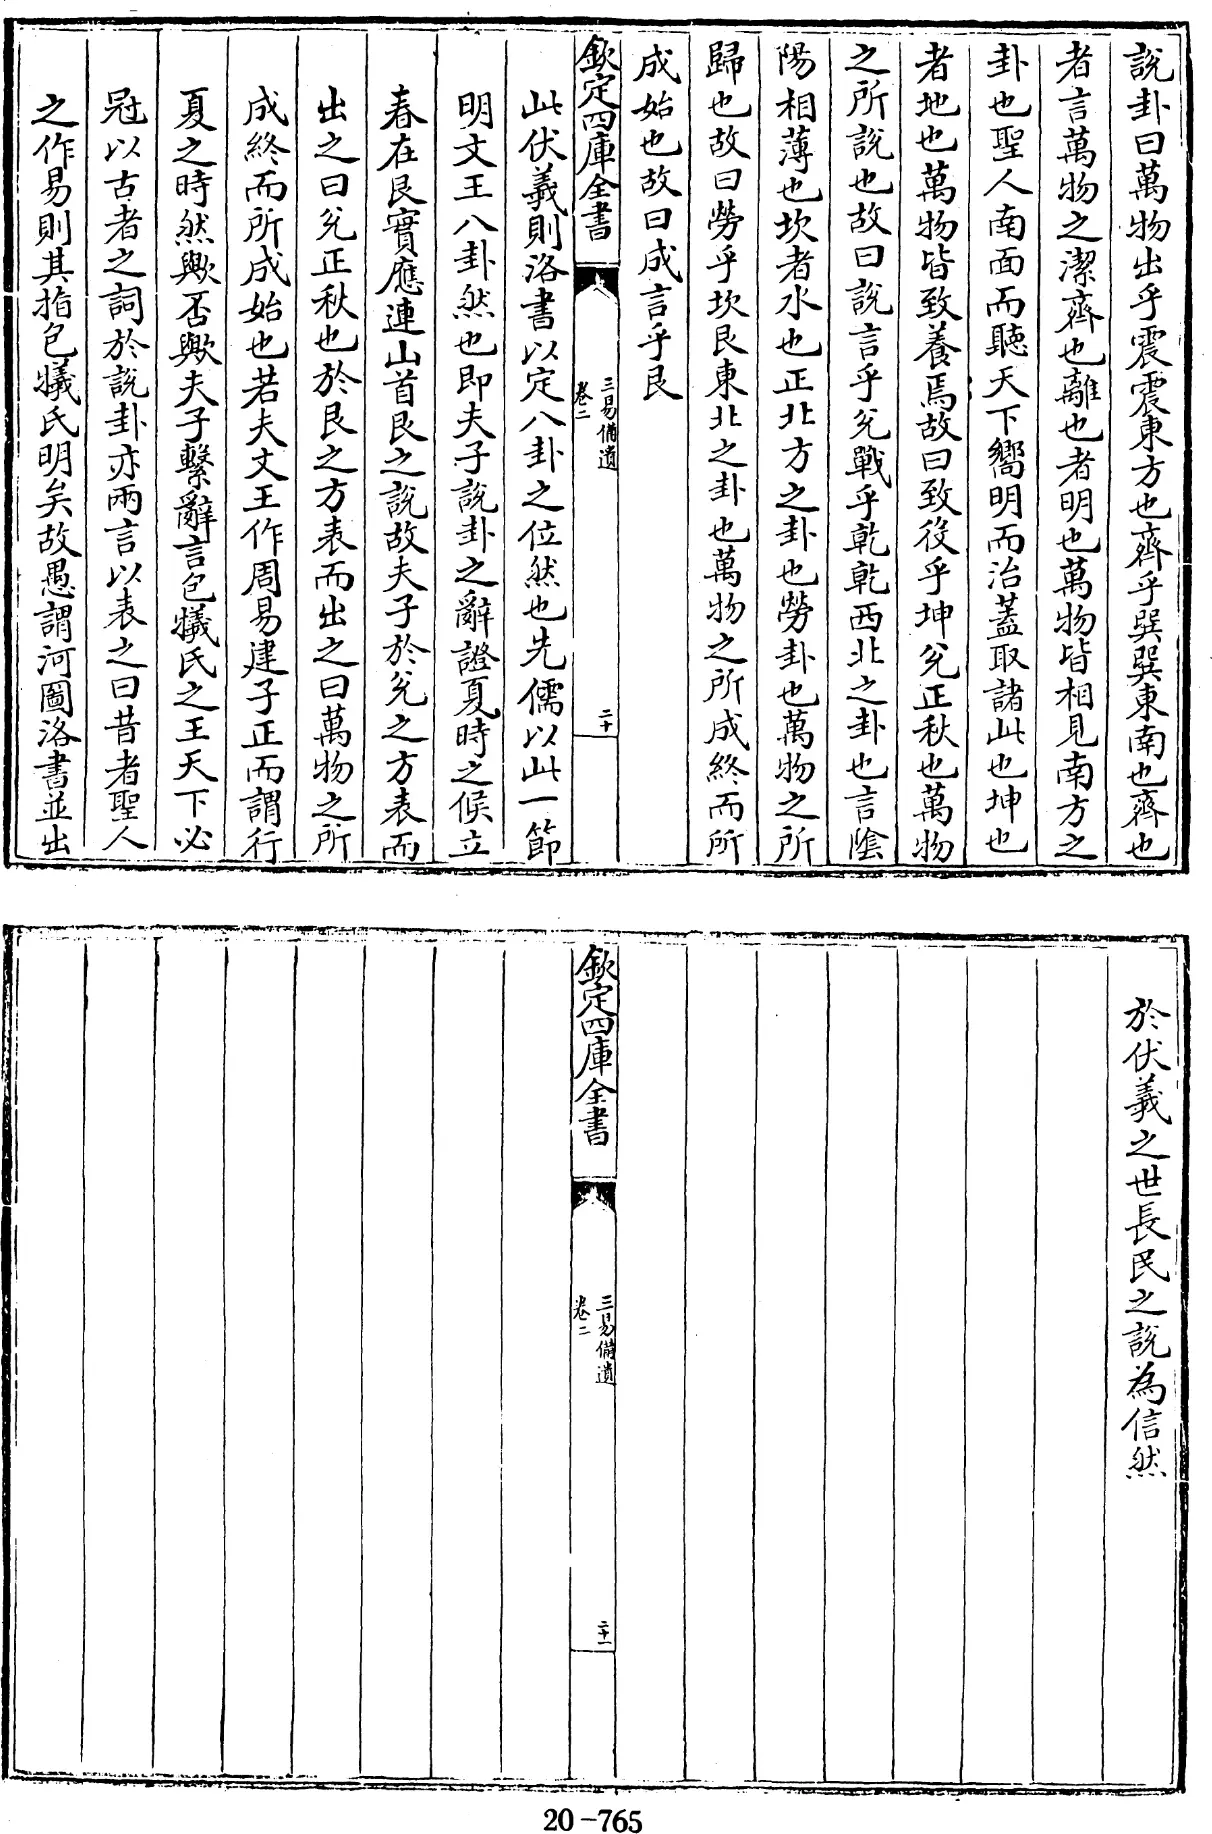 說卦曰萬物出乎震震東方也齊乎巽巽東南也齊也
者言萬物之潔齊也離也者明也萬物皆相見南方之
卦也聖人南面而聽天下嚮明而治蓋取諸此也坤也
者地也萬物皆致養焉故曰致役乎坤兌正秋也萬物
之所說也故曰說言乎兌戰乎乾乾西北之卦也言陰
陽相薄也坎者水也正北方之卦也勞卦也萬物之所
歸也故曰勞乎坎艮東北之卦也萬物之所成終而所
成始也故曰成言乎艮
欽定四庫全書
三易備遺
卷二
二十
此伏羲則洛書以定八卦之位然也先儒以此一節
明文王八卦然也即夫子說卦之辭證夏時之候立
春在艮實應連山首艮之說故夫子於兌之方表而
出之曰兌正秋也於艮之方表而出之曰萬物之所
成終而所成始也若夫文王作周易建子正而謂行
夏之時然歟否歟夫子繫辭言包犧氏之王天下必
冠以古者之詞於說卦亦兩言以表之曰昔者聖人
之作易則其指包犧氏明矣故愚謂河圖洛書並出
於伏羲之世長民之說為信然
欽定四庫全書
三易備遺
卷二
二十一
20-765